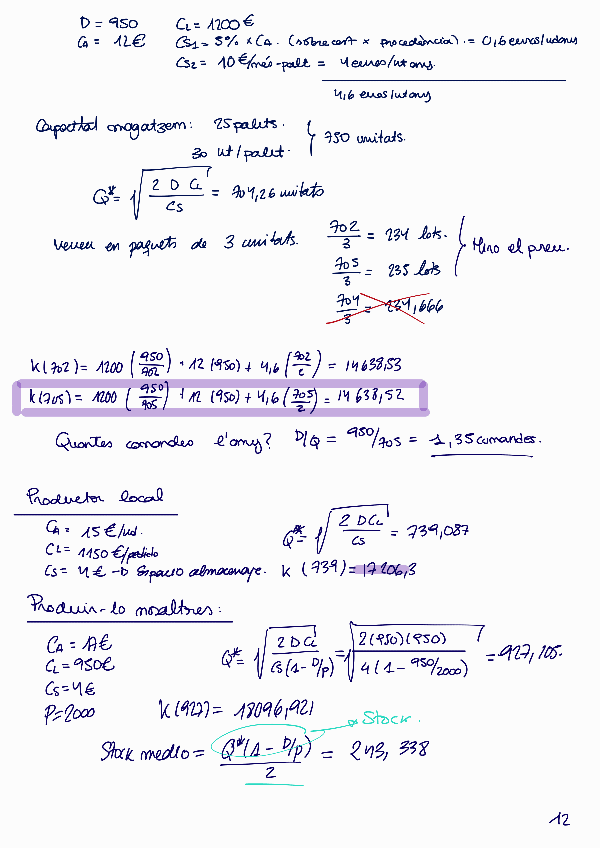 D = 950 CL = 1200 €
CA = 12 € CS1 = 5% × CA. (sobrecost × procedència). = 0,6 euros/ut·any
CS2 = 10 €/més-palt = 4 euros/ut any.
4,6 euros/ut any
Capacitat magatzem: 25 palets.
30 ut/palet.
750 unitats.
Q* = √(2 D CL / CS) = 704,26 unitats
Venen en paquets de 3 unitats.
702/3 = 234 lots.
705/3 = 235 lots
Miro el preu.
704/3 = 234,666
K(702) = 1200 (950/702) + 12 (950) + 4,6 (702/2) = 14638,53
K(705) = 1200 (950/705) + 12 (950) + 4,6 (705/2) = 14638,52
Quantes comandes l'any? D/Q = 950/705 = 1,35 comandes.
Productor local
CA = 15 €/ud.
CL = 1150 €/partida
CS = 4 € -D Espacio almacenaje.
Q* = √(2 D CL / CS) = 739,087
K (739) = 17206,3
Produir-lo nosaltres:
CA = 17 €
CL = 950 €
CS = 4 €
P = 2000
Q* = √(2 D CL / CS (1 - D/P)) = √(2(950)(950) / 4(1 - 950/2000)) = 927,105.
K(927) = 18096,921
Stock.
Stock medio = Q*(1 - D/P) / 2 = 243,338
12